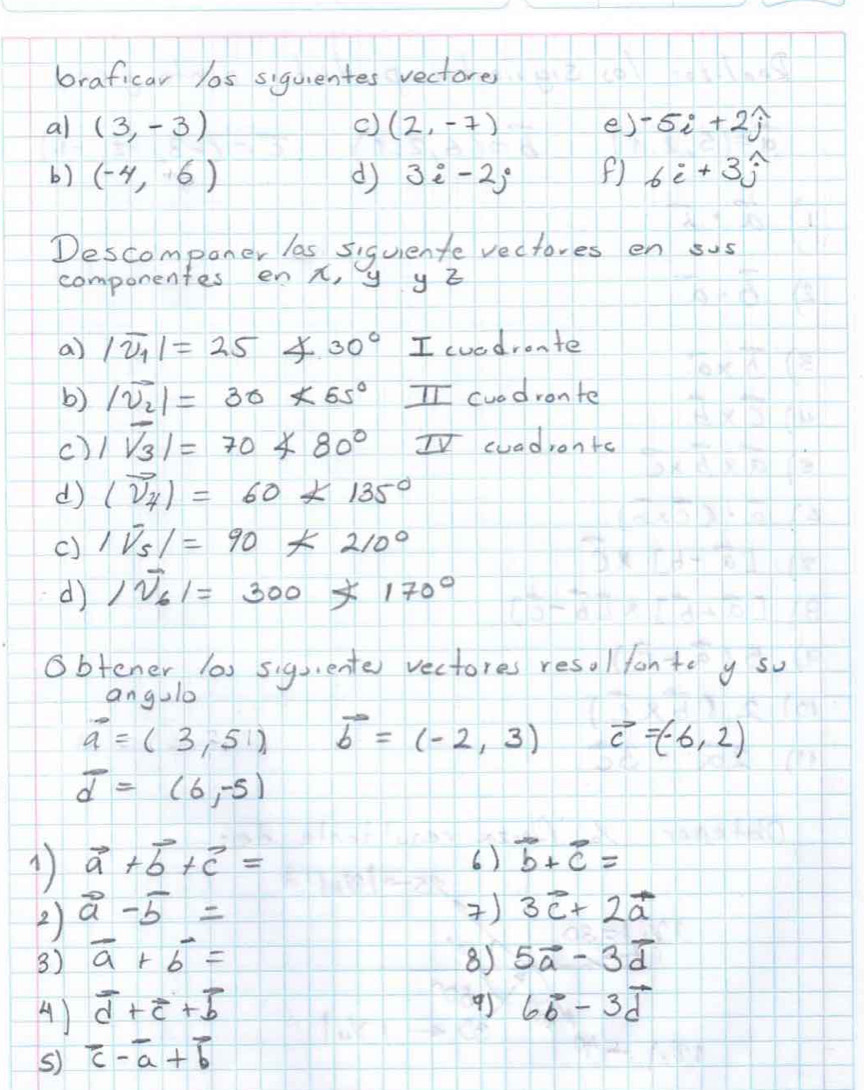 Graficar los siguientes vectores
a) (3, -3) c) (2, -7) e) -5i + 2ĵ
b) (-4, 6) d) 3i - 2j f) 6i + 3ĵ
Descomponer los siguiente vectores en sus
componentes en x, y y z
a) |v⃗₁| = 25 ∡ 30° I cuadrante
b) |v⃗₂| = 30 ∡ 65° II cuadrante
c) |V⃗₃| = 70 ∡ 80° IV cuadrante
d) (V⃗₄) = 60 ∡ 135°
c) |V⃗₅| = 90 ∡ 210°
d) |V⃗₆| = 300 ∡ 170°
Obtener los siguientes vectores resultante y su
angulo
a⃗ = (3, 5) b⃗ = (-2, 3) c⃗ = (-6, 2)
d⃗ = (6, -5)
1) a⃗ + b⃗ + c⃗ = 6) b⃗ + c⃗ =
2) a⃗ - b⃗ = 7) 3c⃗ + 2a⃗
3) a⃗ + b⃗ = 8) 5a⃗ - 3d⃗
4) d⃗ + c⃗ + b⃗ 9) 6b⃗ - 3d⃗
5) c⃗ - a⃗ + b⃗